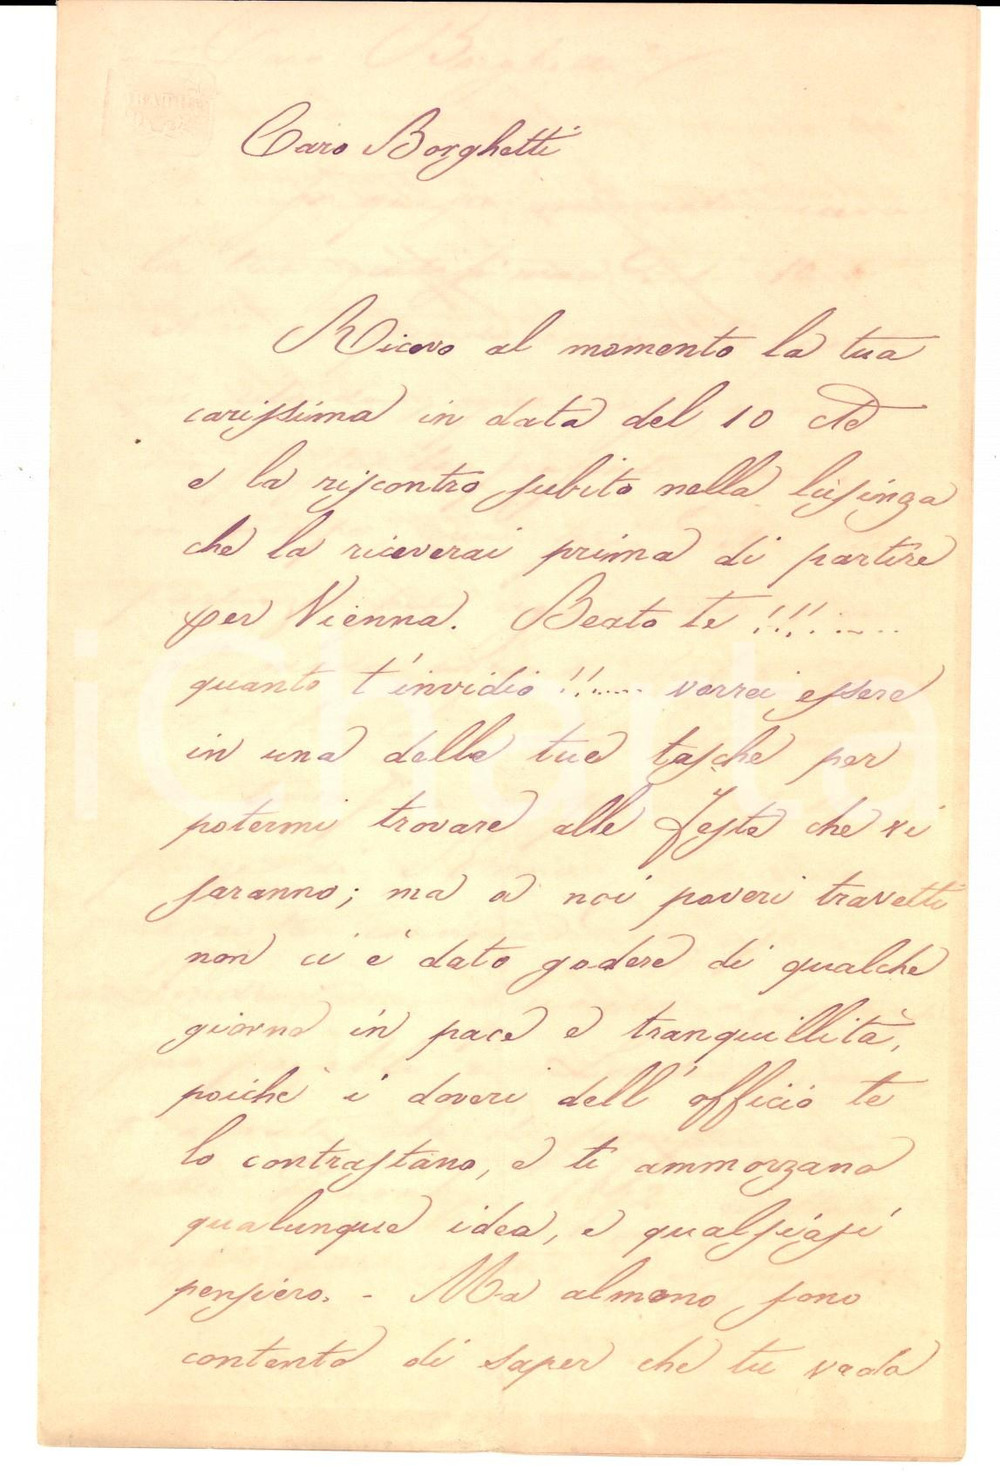 Caro Borghetti
Ricevo al momento la tua
carissima in data del 10 cte
e la riscontro subito nella lusinga
che la riceverai prima di partire
per Vienna. Beato te !!!......
quanto t'invidio !!...... vorrei essere
in una delle tue tasche per
potermi trovare alle feste che vi
saranno; ma a noi poveri travetti
non ci è dato godere di qualche
giorno in pace e tranquillità,
poichè i doveri dell'officio te
lo contrastano, e ti ammorzano
qualunque idea, e qualsiasi
pensiero. - Ma almeno sono
contento di saper che tu vada
iCharta